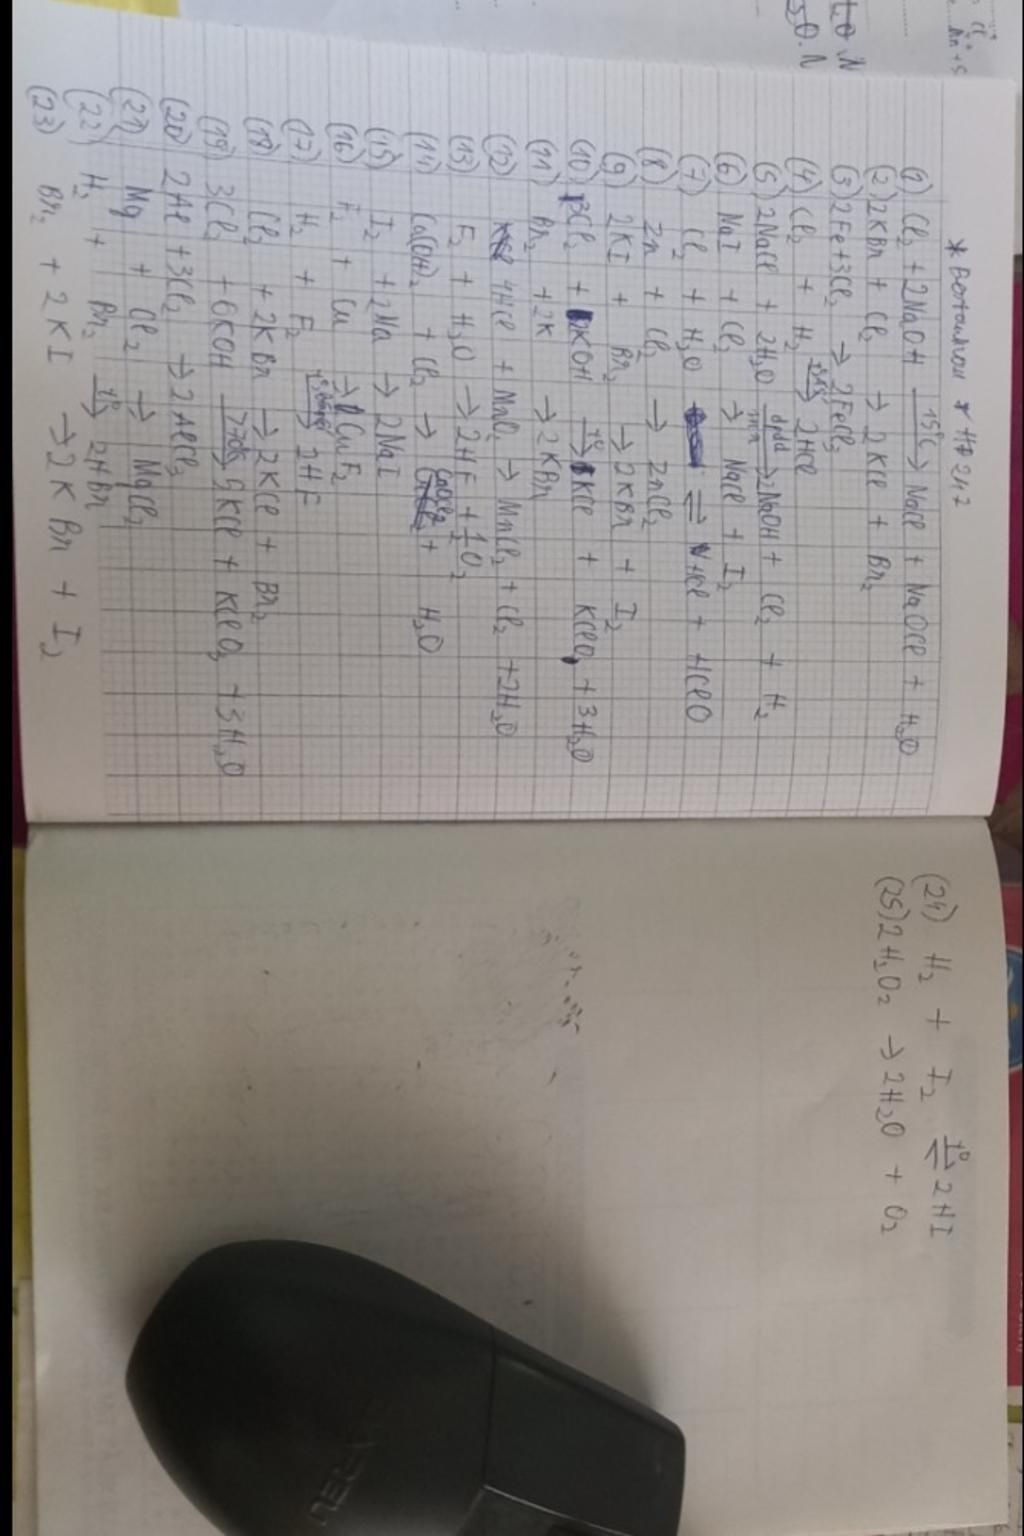 * Bestanbon * H# 2n2
(1) Cl₂ + 2NaOH —15°C→ NaCl + NaOCl + H₂O
(2) 2KBr + Cl₂ → 2KCl + Br₂
(3) 2Fe + 3Cl₂ → 2FeCl₃
(4) Cl₂ + H₂ → 2HCl
(5) 2NaCl + 2H₂O —dpdd→ 2NaOH + Cl₂ + H₂
(6) NaI + Cl₂ → NaCl + I₂
(7) Cl₂ + H₂O ⇌ HCl + HClO
(8) Zn + Cl₂ → ZnCl₂
(9) 2KI + Br₂ → 2KBr + I₂
(10) 3Cl₂ + KOH —t°→ KCl + KClO₃ + 3H₂O
(11) Br₂ + 2K → 2KBr
(12) 4HCl + MnO₂ → MnCl₂ + Cl₂ + 2H₂O
(13) F₂ + H₂O → 2HF + ½O₂
(14) Ca(OH)₂ + Cl₂ → CaOCl₂ + H₂O
(15) I₂ + 2Na → 2NaI
(16) F₂ + Cu → CuF₂
(17) H₂ + F₂ → 2HF
(18) Cl₂ + 2KBr → 2KCl + Br₂
(19) 3Cl₂ + 6KOH → 5KCl + KClO₃ + 3H₂O
(20) 2Al + 3Cl₂ → 2AlCl₃
(21) Mg + Cl₂ → MgCl₂
(22) H₂ + Br₂ —t°→ 2HBr
(23) Br₂ + 2KI → 2KBr + I₂
(24) H₂ + I₂ ⇌ t° 2HI
(25) 2H₂O₂ → 2H₂O + O₂